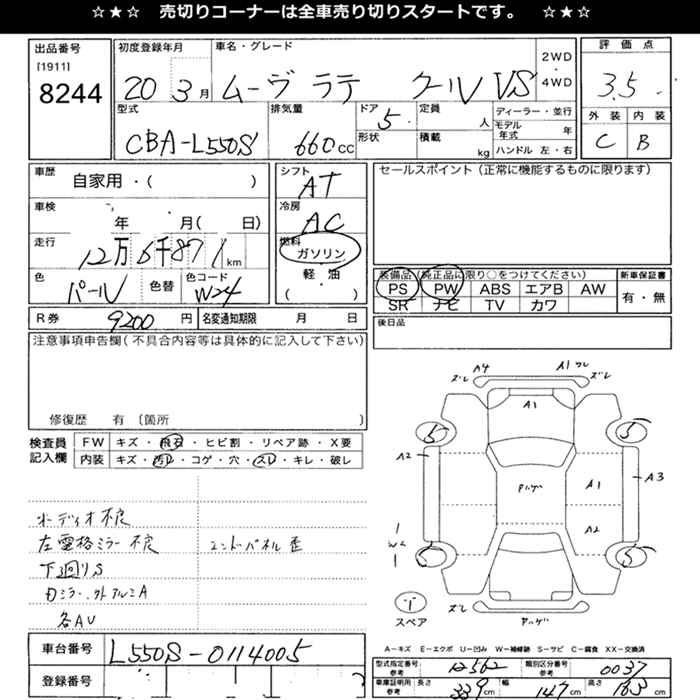 ☆★☆ 売切りコーナーは全車売り切りスタートです。 ☆★☆
出品番号
[1911]
8244
初度登録年月
20 3月
車名・グレード
ムーヴ ラテ クール VS
2WD
・
4WD
評価点
3.5
外装 内装
C B
型式
CBA-L550S
排気量
660cc
ドア
5
形状
定員
人
積載
kg
ディーラー・並行
モデル年式 年
ハンドル 左・右
車歴
自家用・( )
車検
年 月( 日)
走行
12万6千871km
色
パール
色替
色コード
W24
シフト
AT
冷房
AC
燃料
ガソリン
軽・油
( )
セールスポイント(正常に機能するものに限ります)
装備品(純正品に限り○をつけてください)
PS PW ABS エアB AW
SR ナビ TV カワ
新車保証書
有・無
R券 9200円
名変通知期限 月 日
後日品
注意事項申告欄(不具合内容等は具体的に記入して下さい)
修復歴 有 (箇所 )
検査員
記入欄
FW キズ・飛石・ヒビ割・リペア跡・X要
内装 キズ・汚レ・コゲ・穴・スレ・キレ・破レ
オーディオ不良
左電格ミラー不良
下廻りS
内ミラー, 外アルミA
各AU
エンドパネル歪
A4
ズレ
A1 ワレ
ズレ
A1
5
5
A2
A3
Pハゲ
A1
A2
W2
5
5
ズレ
Pハゲ
スペア
A-キズ E-エクボ U-凹み W-補修跡 S-サビ C-腐食 XX-交換済
車台番号
L550S-0114005
登録番号
型式指定番号
参考
12562
類別区分番号
参考
0037
車庫証明用
参考
長さ 339cm
幅 147cm
高さ 163cm